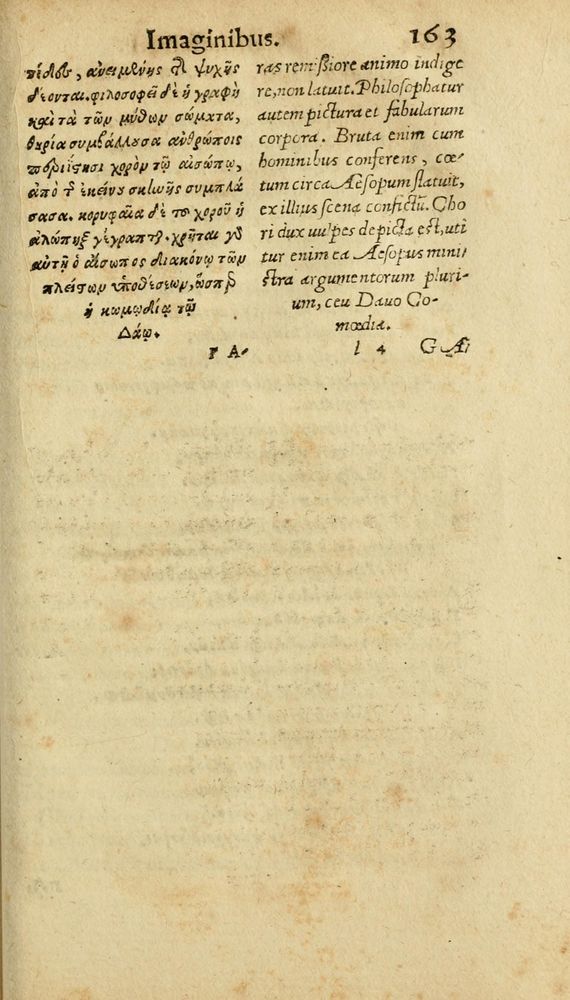 Imaginibus. 163
παῖδες, ἀνειμένης δὲ ψυχῆς
δέονται. φιλοσοφεῖ δὲ ἡ γραφὴ
καὶ τὰ τῶν μύθων σώματα,
θηρία συμβάλλουσα ἀνθρώποις
περιίστησι χορὸν τῷ αἰσώπῳ,
ἀπὸ τ ἐκείνου σκηνῆς συμπλά
σασα. κορυφαῖα δὲ τοῦ χοροῦ ἡ
ἀλώπηξ γέγραπται. χρῆται γὰρ
αὐτῇ ὁ αἴσωπος διακόνῳ τῶν
πλείστων ὑποθέσεων, ὥσπερ
ἡ κωμῳδία τῷ
Δάῳ.
ΓΑ-
ras remißiore animo indige
re, non latuit. Philosophatur
autem pictura et fabularum
corpora. Bruta enim cum
hominibus conferens, cœ-
tum circa Aesopum statuit,
ex illius scena confictū. Cho
ri dux uulpes depicta est, uti
tur enim ea Aesopus mini
stra argumentorum pluri-
um, ceu Dauo Co-
mœdia.
l 4 G Æ